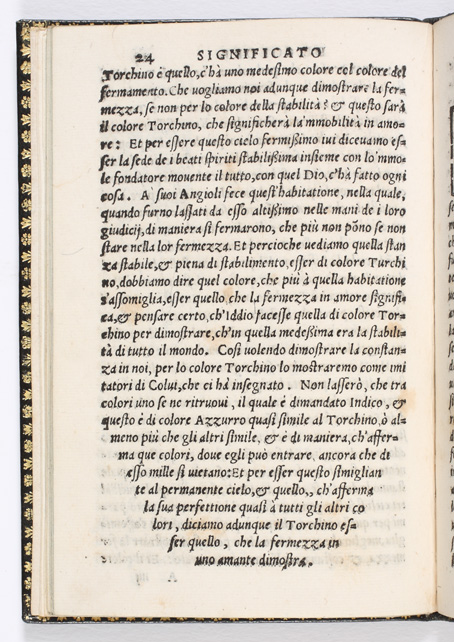 24 SIGNIFICATO
Torchino è quello, c'hà uno medesimo colore col colore del
fermamento. Che uogliamo noi adunque dimostrare la fer=
mezza, se non per lo colore della stabilità? & questo sarà
il colore Torchino, che significherà la'mmobilità in amo=
re: Et per essere questo cielo fermissimo iui diceuamo es=
ser la sede de i beati spiriti stabilissima insieme con lo'mmo
le fondatore mouente il tutto, con quel Dio, c'hà fatto ogni
cosa. A suoi Angioli fece quest'habitatione, nella quale,
quando furno lassati da esso altissimo nelle mani de i loro
giudicij, di maniera si fermarono, che più non põno se non
stare nella lor fermezza. Et percioche uediamo quella stan
za stabile, & piena di stabilimento, esser di colore Turchi
no, dobbiamo dire quel colore, che più à quella habitatione
s'assomiglia, esser quello, che la fermezza in amore signifi=
ca, & pensare certo, ch'Iddio facesse quella di colore Tor=
chino per dimostrare, ch'in quella medesima era la stabili=
tà di tutto il mondo. Così uolendo dimostrare la constan=
za in noi, per lo colore Torchino lo mostraremo come imi
tatori di Colui, che ci hà insegnato. Non lasserò, che tra
colori uno se ne ritruoui, il quale è dimandato Indico, &
questo è di colore Azzurro quasi simile al Torchino, ò al=
meno più che gli altri simile, & è di maniera, ch'affer=
ma que colori, doue egli può entrare, ancora che di
esso mille si uietano: Et per esser questo simiglian
te al permanente cielo, & quello,, ch'afferma
la sua perfettione quasi à tutti gli altri co
lori, diciamo adunque il Torchino es=
ser quello, che la fermezza in
uno amante dimostra.